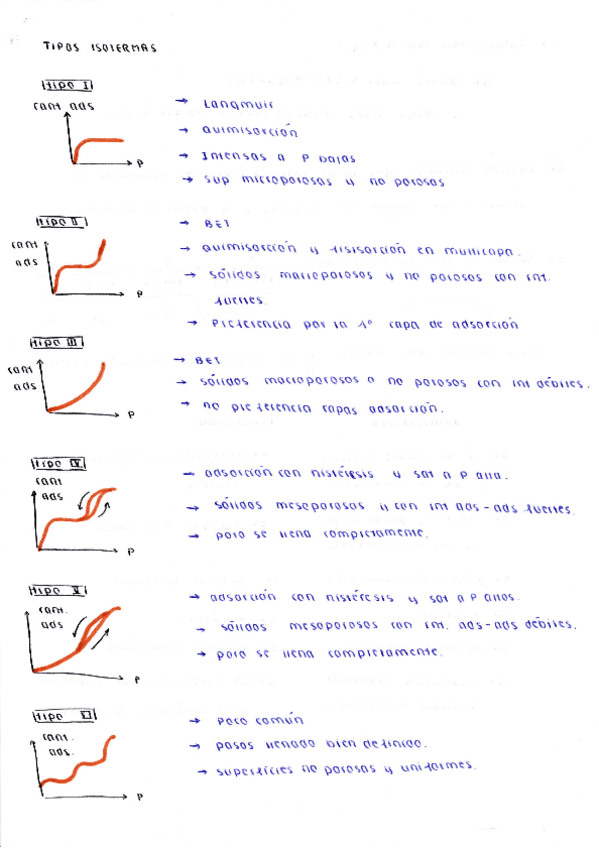 TIPOS ISOTERMAS
tipo I
cant ads
P
→ Langmuir
→ quimisorción
→ Intensas a P bajas
→ sup microporosas y no porosas
tipo II
cant
ads
P
→ BET
→ quimisorción y fisisorción en multicapa.
→ sólidos macroporosos y no porosos con int.
fuertes.
→ Preferencia por la 1º capa de adsorción
tipo III
cant
ads
P
→ BET
→ sólidos macroporosos o no porosos con int débiles.
→ no preferencia capas adsorción.
tipo IV
cant
ads
P
→ adsorción con histéresis y sat a P alta.
→ sólidos mesoporosos y con int ads-ads fuertes.
→ poro se llena completamente.
tipo V
cant.
ads
P
→ adsorción con histéresis y sat a P altas.
→ sólidos mesoporosos con int. ads-ads débiles.
→ poro se llena completamente.
tipo VI
cant.
ads.
P
→ Poco común
→ pasos llenado bien definido.
→ superficies no porosas y uniformes.